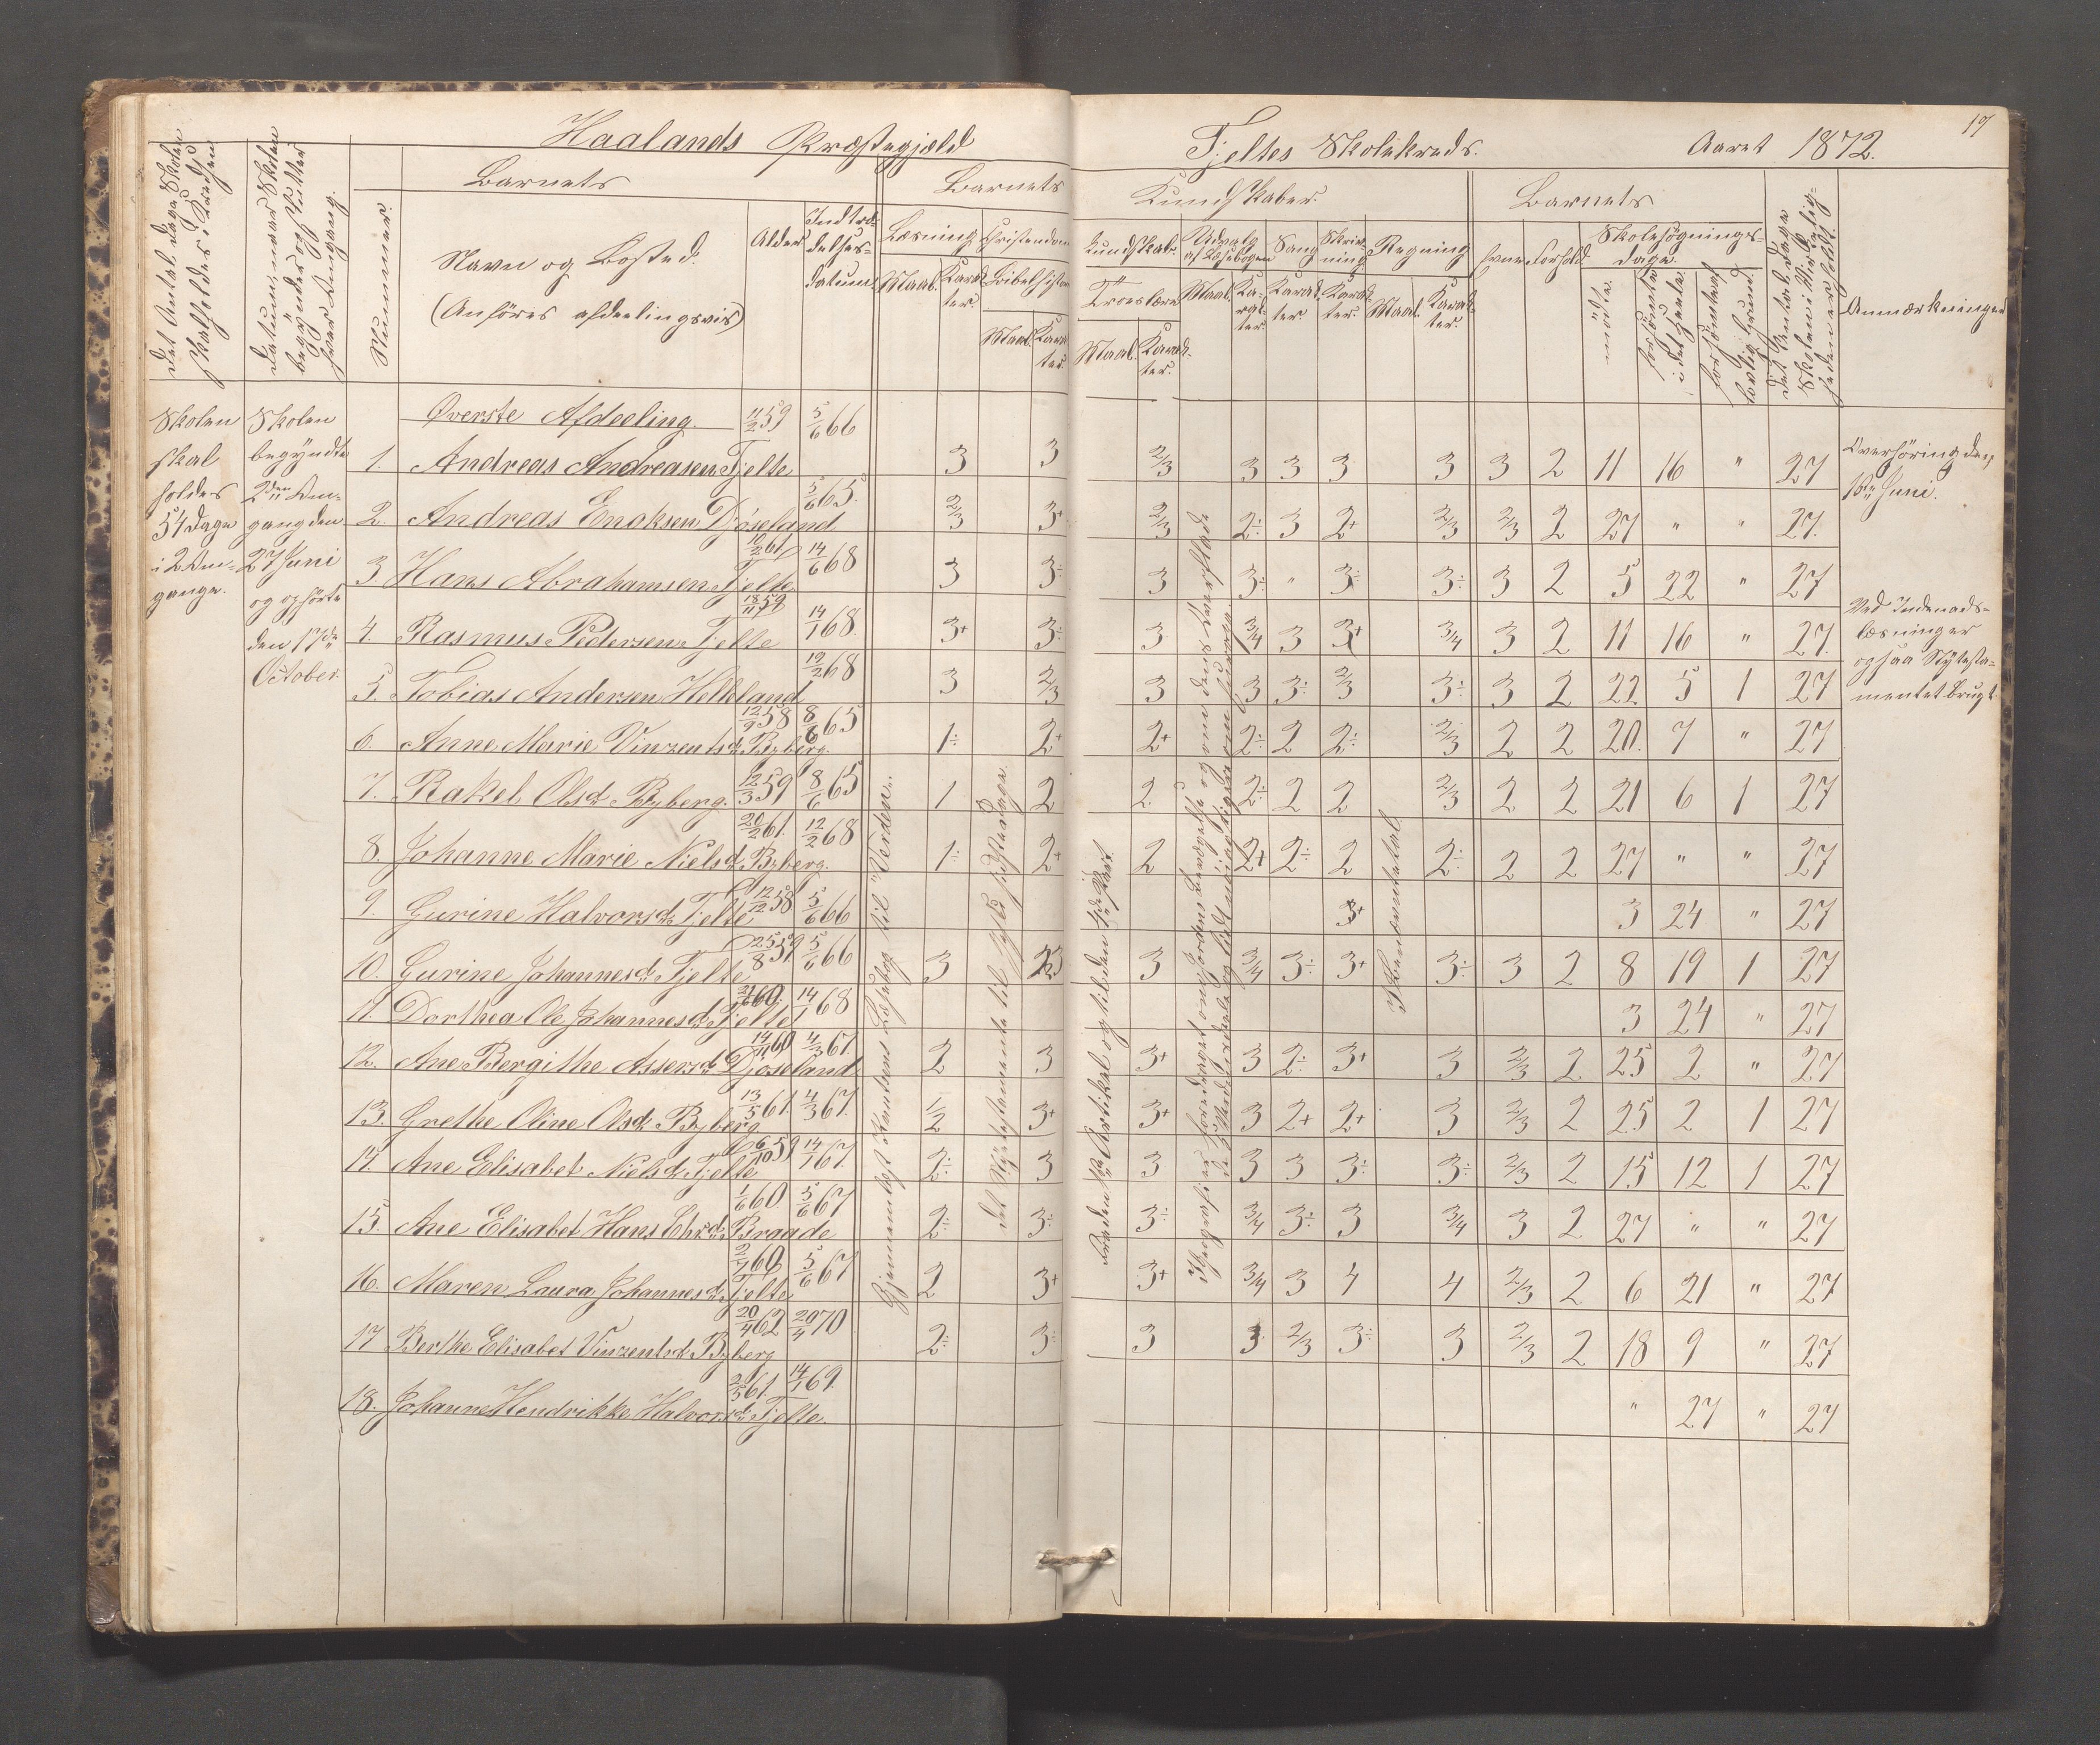 Haalands Præstegjæld
Fjeltes Skolekreds. Aaret 1872.
17
Det Antal Dage Skolen skal holdes i Kredsen
Datum, naar Skolen begynder og slutter hver Omgang.
Nummer.
Barnets
Navn og Bosted.
(Anföres afdelingsvis)
Alder
Indtræ-
delses-
datum
Barnets
Læsning
Christendom
Maal.
Karak-
ter
Bibelhistorie
Maal
Karak-
ter.
Kundskaber.
Kundskab.
Udvalg
af Læsebogen
Sang
Skriv-
ning
Regning
Troeslære
Maal.
Karak-
ter.
Maal.
Ka-
rak-
ter.
Karak-
ter.
Karak-
ter.
Maal.
Karak-
ter.
Barnets
Evne
Forhold
Skolesögnings-
dage.
mödte.
forsömte i det Hele.
forsömte af lovlig Grund.
Det Antal Dage Skolen i Virkelig-heden er holdt.
Anmærkninger
Skolen
skal
holdes
54 Dage
i 2 Om-
gange.
Skolen
begyndte
2den Om-
gang den
27 Juni
og ophörte
den 17de
October.
Øverste Afdeling. 11/2 59 5/6 66
1. Andreas Andreasen Fjelte 3 3 2/3 3 3 3 3 3 2 11 16 " 27
2. Andreas Enoksen Djöseland 5/6 65. 2/3 3+ 2/3 2÷ 3 2+ 2/3 2/3 2 27 " " 27.
3 Hans Abrahamsen Fjelte 10/2 61 14/6 68 3 3÷ 3 3÷ " 3÷ 3÷ 3 2 5 22 " 27
4. Rasmus Pedersen Fjelte 18/11 59 14/1 68. 3+ 3÷ 3 3/4 3 3+ 3/4 3 2 11 16 " 27.
5. Tobias Andersen Helleland 12/2 68 3 2/3 3 3 3÷ 2/3 3÷ 3 2 22. 5 1 27
6. Anne Marie Vinzentsd. Byberg. 12/9 58 8/6 65 1÷ 2+ 2+ 2÷ 2 2÷ 2/3 2 2 20. 7 " 27
7. Rakel Olsd. Byberg. 12/3 59 8/6 65 1 2 2. 2÷ 2 2 2/3 2 2 21 6 1 27
8. Johanne Marie Nielsd. Byberg. 20/2 61. 12/2 68 1÷ 2+ 2 2+ 2÷ 2 2÷ 2 2 27 " " 27
9. Gurine Halvorsd. Fjelte 12/12 58 5/6 66 3+ 3 24 " 27
10. Gurine Johannesd. Fjelte 25/8 59 5/6 66 3 3 3/4 3÷ 3+ 3÷ 3 2 8 19 1 27
11. Dorthea Ole Johannesd. Fjelte 60. 14/1 68 3 24 " 27
12. Ane Bergithe Assersd. Djöseland 14/11 60 4/3 67. 2 3 3+ 3 2÷ 3+ 3 2/3 2 25 2 " 27
13. Grethe Oline Olsd. Byberg 13/5 61. 4/3 67. 1/2 3+ 3+ 3 2+ 2+ 3 2/3 2 25 2 1 27
14. Ane Elisabet Nielsd. Fjelte 6/10 59 14/1 67. 2÷ 3 3 3 3 3÷ 3÷ 2/3 2 15 12 1 27
15. Ane Elisabet Hans Chr.d. Braade 1/6 60 5/6 67 2÷ 3÷ 3÷ 3/4 3÷ 3 3/4 3 2 27 " " 27
16. Maren Laura Johannesd. Fjelte 2/7 60 5/6 67 2 3+ 3+ 3/4 3 4 4 2/3 2 6 21 " 27
17 Berthe Elisabet Vinzentsd. Byberg 20/4 62 20/4 70 2÷ 3÷ 3 3. 2/3 3÷ 3 2/3 2 18 9 " 27
18. Johanne Hendrikke Halvorsd. Fjelte. 2/5 61. 14/1 69. " 27 " 27
Gjennemlæst Læsebog til "Verden".
det Nytestamente til
Fra den Artikel og til den
Geografien foredraget om Jordens Bevægelse og om dens Overflade
I Benævntetal
Overhöring den
18de Juni.
Ved Indenads-
læsning er
ogsaa Nytesta-
mentet brugt.